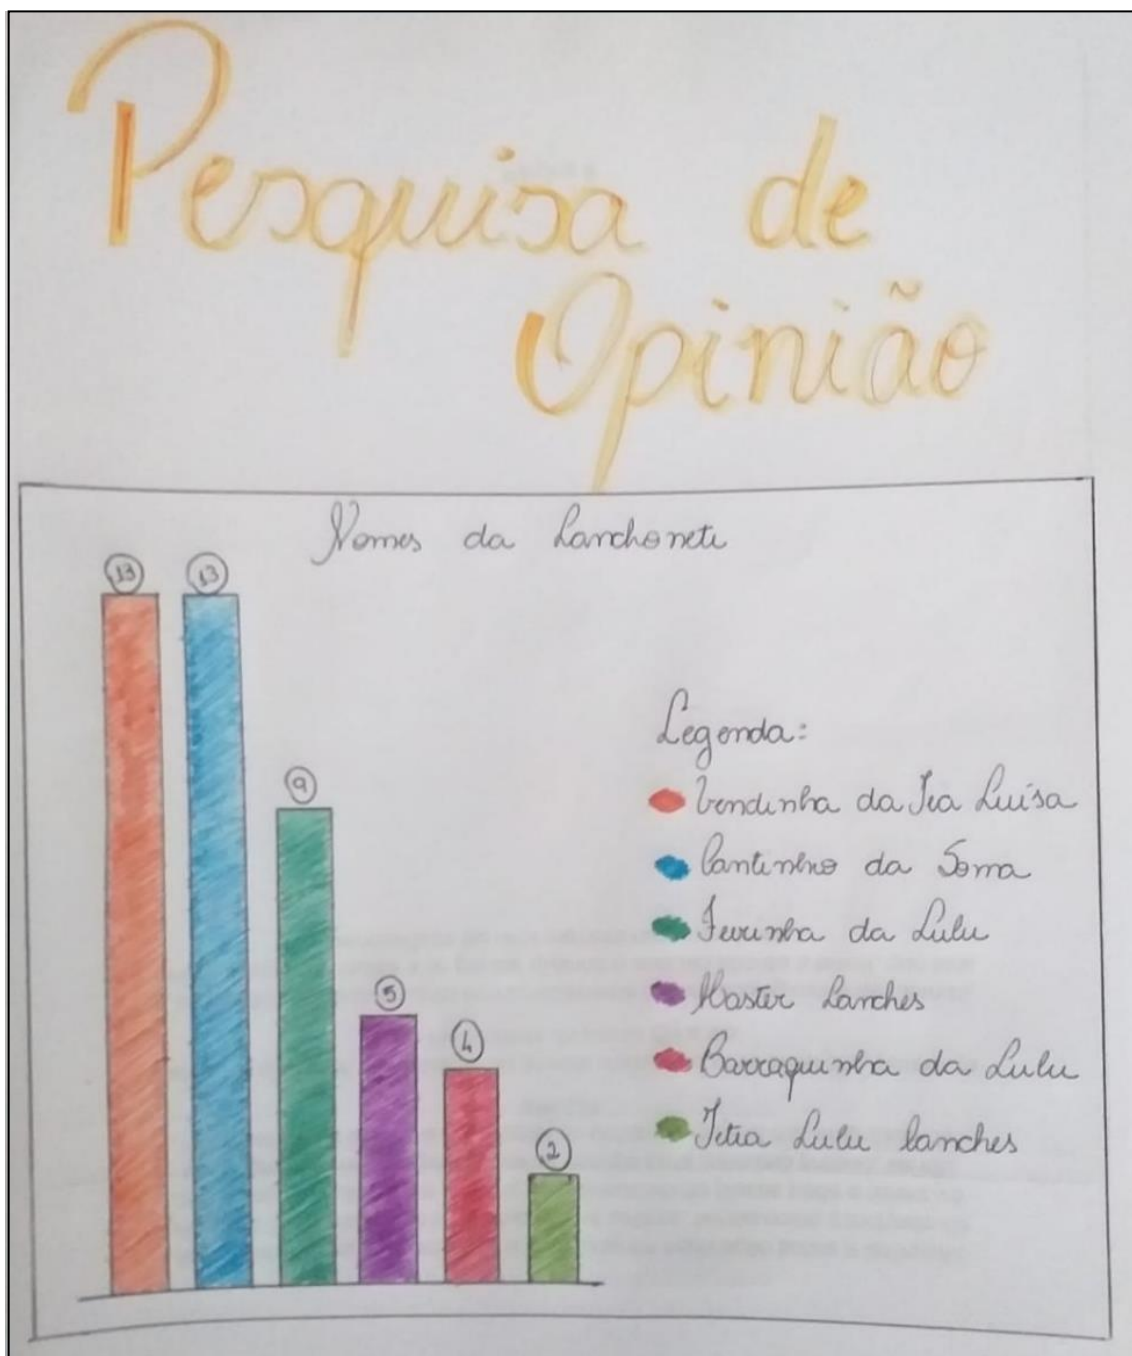 Pesquisa de
Opinião
Nomes da Lanchonete
13
13
9
5
4
2
Legenda:
Vendinha da Tia Luísa
Cantinho da Soma
Feirinha da Lulu
Master Lanches
Barraquinha da Lulu
Lulu lanches